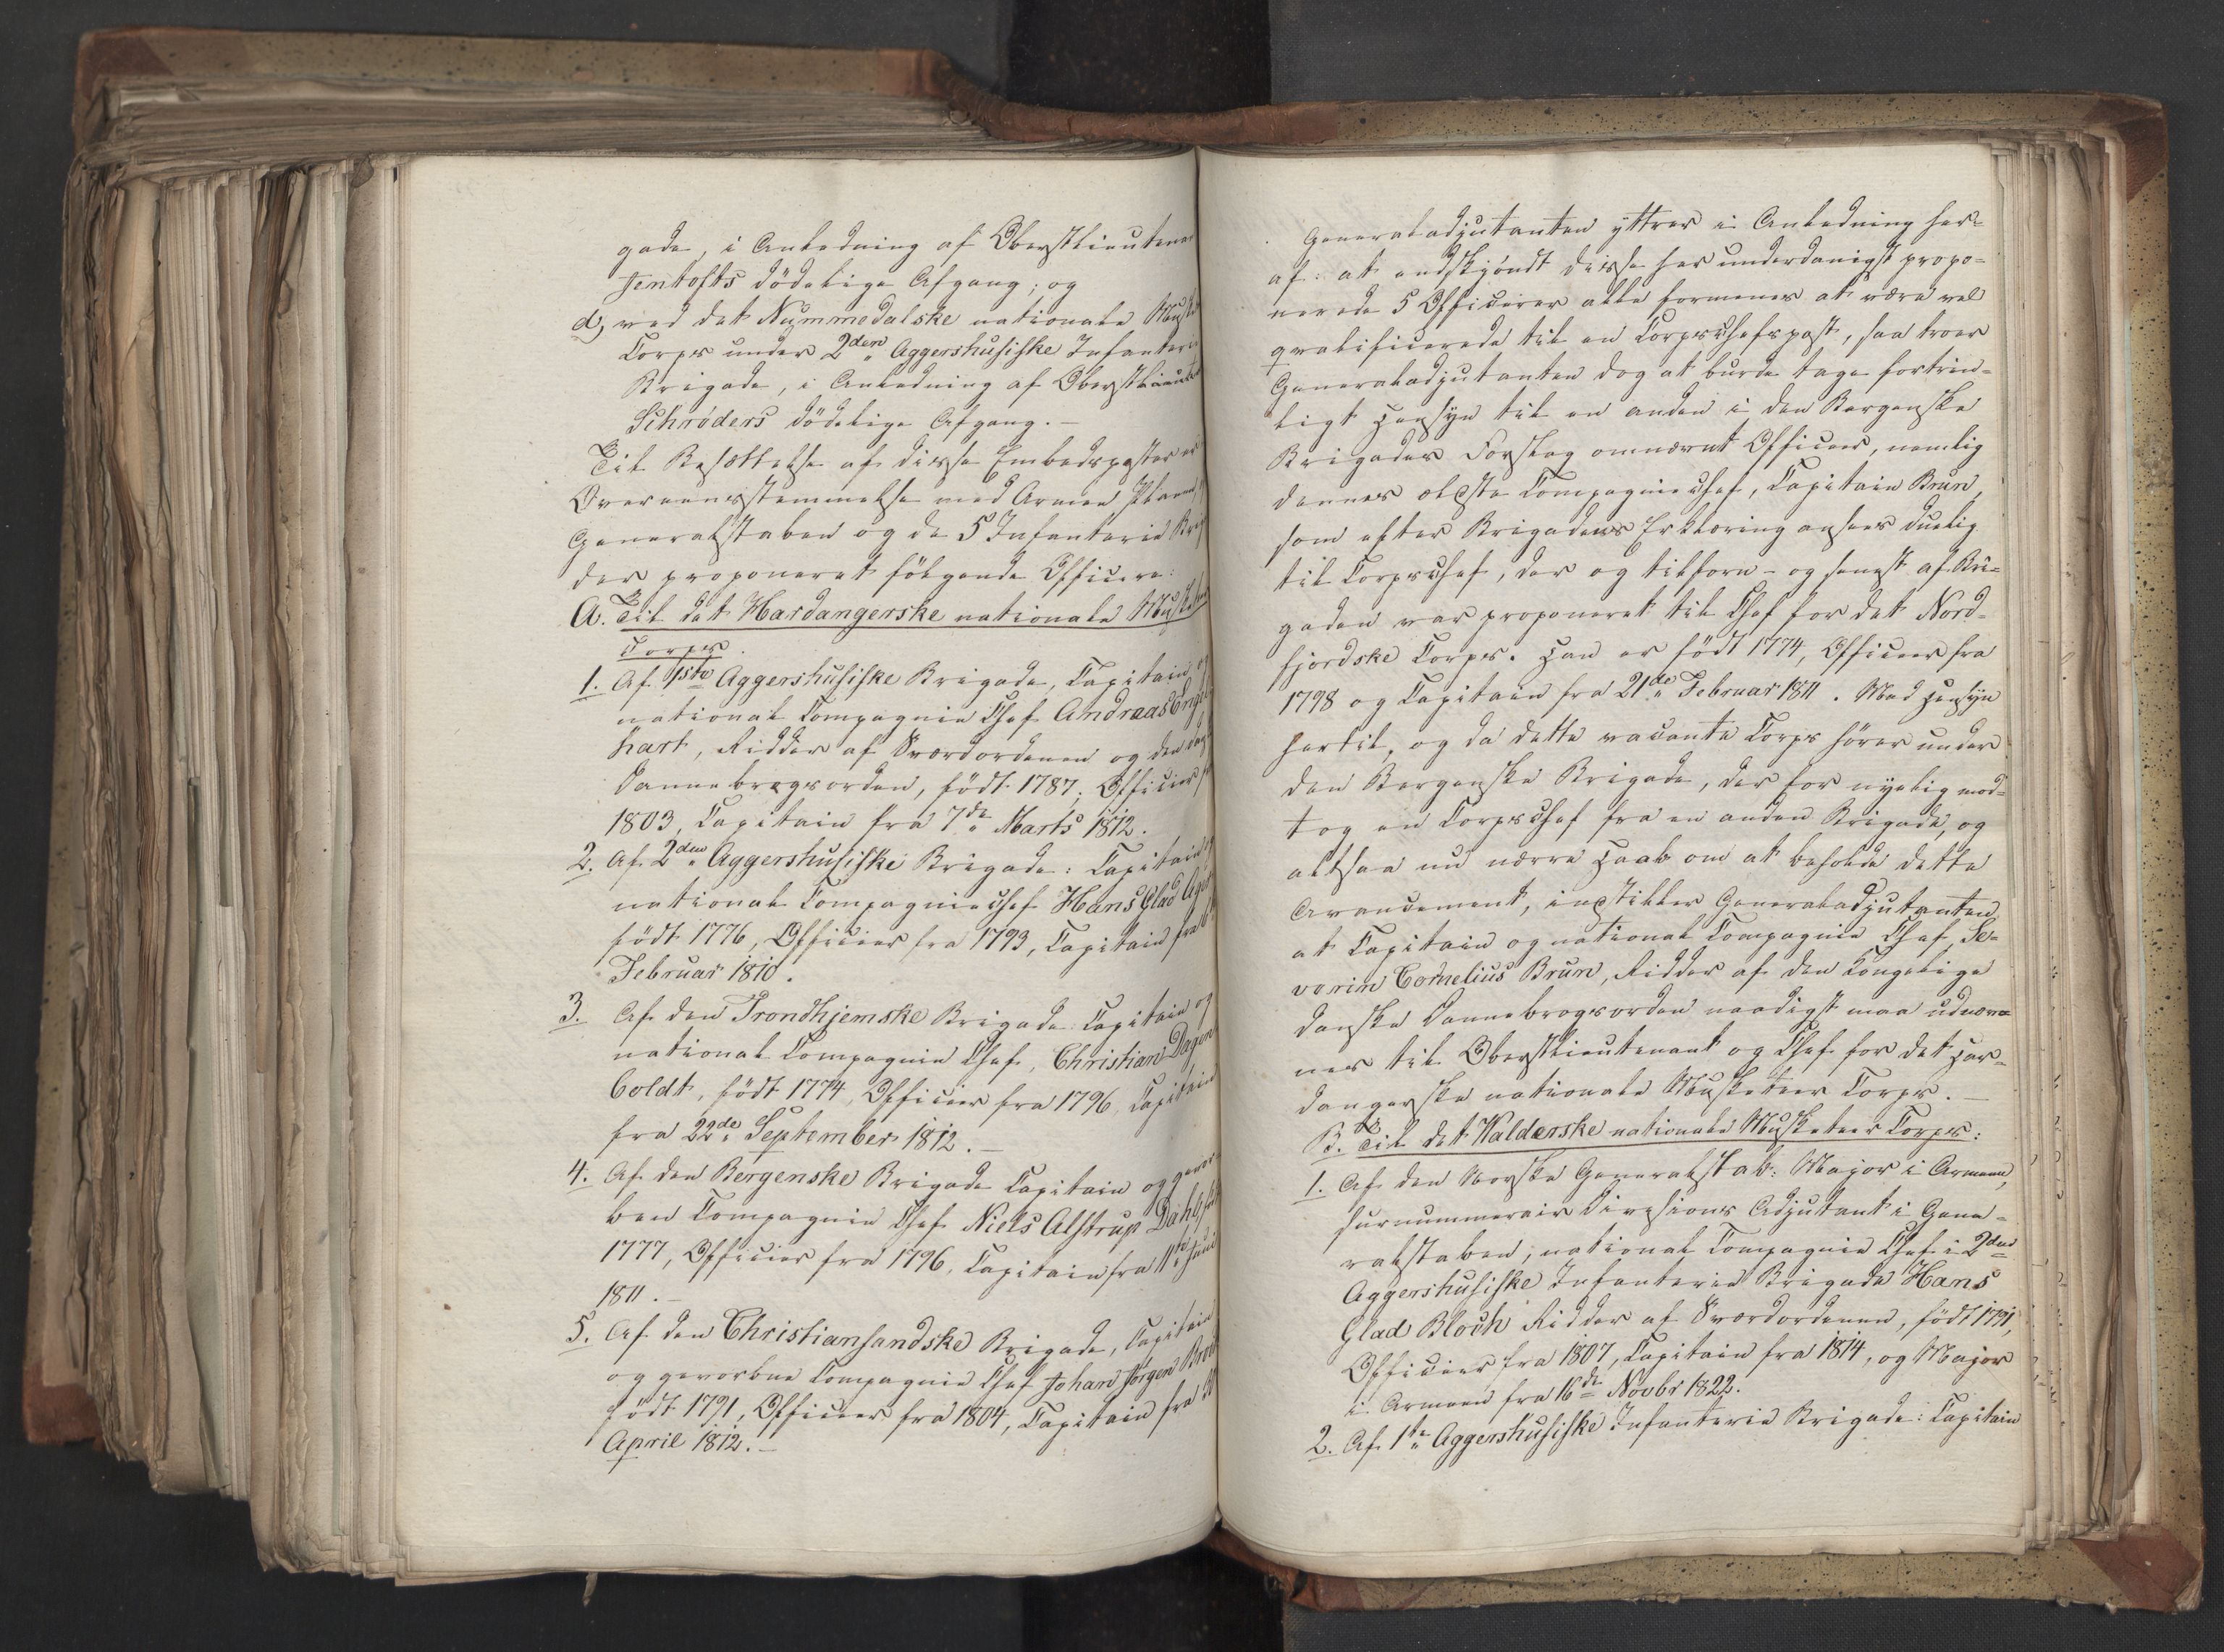 gade, i Anledning af Oberstlieutenan
Jentofts dödelige Afgang; og
d, ved det Nummedalske nationale Musk
Corps under 2den Aggershusiske Infanterie
Brigade, i Anledning af Oberstlieuten
Schröders dödelige Afgang. –
Til Besættelse af disse Embedsposter er
Overeensstemmelse med Armee Planen,
Generalstaben og de 5 Infanterie Bri
der proponeret fölgende Officerer:
A. Til det Hardangerske nationale Musketeer
Corps.
1. Af 1ste Aggershusiske Brigade, Capitain og
national Compagnie Chef Andreas Engel
hart, Ridder af Sværdordenen og den
Dannebrogsorden, födt 1787, Officier fra
1803, Capitain fra 7de Marts 1812.
2. Af 2den Aggershusiske Brigade: Capitain og
national Compagniechef Hans Glad
födt 1776, Officier fra 1793, Capitain fra
Februar 1810.
3. Af den Trondhjemske Brigade Capitain og
national Compagnie Chef, Christian Dagen
boldt, födt 1774, Officier fra 1796, Capitain
fra 22de September 1812. –
4. Af den Bergenske Brigade Capitain og gevor
ben Compagnie Chef Niels Alstrup Dahl, födt
1777, Officier fra 1796, Capitain fra 11te Juni
1811. –
5. Af den Christiansandske Brigade, Capitain
og gevorben Compagnie Chef Johan Jörgen
födt 1791, Officier fra 1804, Capitain fra
April 1812. –
Generaladjutanten yttrer i Anledning her-
af: at endskjöndt disse her underdanigst propo-
nerede 5 Officierer alle formenes at være vel
qvalificerede til en Corpschefspost, saa troer
Generaladjutanten dog at burde tage fortrin-
ligt Hensyn til en anden i den Bergenske
Brigades Forslag omnævnt Officier, nemlig
dennes ældste Compagniechef, Capitain Brun,
som efter Brigadens Erklæring ansees duelig
til Corpschef, der og tilforn - og senest af Bri-
gaden var proponeret til Chef for det Nord-
fjordske Corps. Han er födt 1774, Officier fra
1798 og Capitain fra 21de Februar 1811. Med Hensyn
hertil, og da dette vacante Corps hörer under
den Bergenske Brigade, der for nyelig mod-
tog en Corpschef fra en anden Brigade, og
altsaa nu nærer Haab om at beholde dette
Avancement, instiller Generaladjutanten,
at Capitain og national Compagnie Chef Se-
verin Cornelius Brun, Ridder af den Kongelige
danske Dannebrogsorden naadigst maa udnæv-
nes til Oberstlieutenant og Chef for det Har-
dangerske nationale Musketeer Corps. –
B. Til det Walderske nationale Musketeer Corps:
1. Af den Norske Generalstab: Major i Armeen,
surnummerair Divisions Adjutant i Gene-
ralstaben, national Compagnie Chef i 2den
Aggershusiske Infanterie Brigade Hans
Glad Bloch Ridder af Sværdordenen, födt 1791,
Officier fra 1807, Capitain fra 1814, og Major
i Armeen fra 16de Novbr 1822.
2. Af 1te Aggershusiske Infanterie Brigade: Capitain